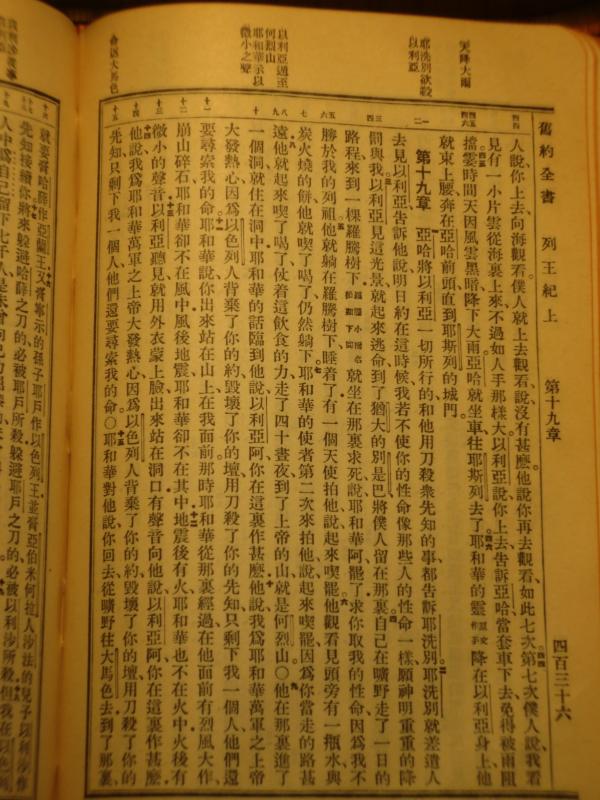 舊約全書 列王紀上 第十九章 四百三十六
天降大雨
耶洗別欲殺
以利亞
以利亞逃至
何烈山
耶和華示以
微小之聲
人說你上去向海觀看僕人就上去觀看說沒有甚麼他說你再去觀看如此七次第七次僕人說我看
見有一小片雲從海裏上來不過如人手那樣大以利亞說你上去告訴亞哈當套車下去免得被雨阻
擋霎時間天因風雲黑暗降下大雨亞哈就坐車往耶斯列去了耶和華的靈降在以利亞身上他
就束上腰奔在亞哈前頭直到耶斯列的城門
第十九章 亞哈將以利亞一切所行的和他用刀殺衆先知的事都告訴耶洗別耶洗別就差遣人
去見以利亞告訴他說明日約在這時候我若不使你的性命像那些人的性命一樣願神明重重的降
罰與我以利亞見這光景就起來逃命到了猶大的別是巴將僕人留在那裏自己在曠野走了一日的
路程來到一棵羅騰樹下就坐在那裏求死說耶和華阿罷了求你取我的性命因爲我不
勝於我的列祖他就躺在羅騰樹下睡着了有一個天使拍他說起來喫罷他觀看見頭旁有一瓶水與
炭火燒的餅他就喫了喝了仍然躺下耶和華的使者第二次來拍他說起來喫罷因爲你當走的路甚
遠他就起來喫了喝了仗着這飲食的力走了四十晝夜到了上帝的山就是何烈山〇他在那裏進了
一個洞就住在洞中耶和華的話臨到他說以利亞阿你在這裏作甚麼他說我爲耶和華萬軍之上帝
大發熱心因爲以色列人背棄了你的約毀壞了你的壇用刀殺了你的先知只剩下我一個人他們還
要尋索我的命耶和華說你出來站在山上在我面前那時耶和華從那裏經過在他面前有烈風大作
崩山碎石耶和華卻不在風中風後地震耶和華卻不在其中地震後有火耶和華也不在火中火後有
微小的聲音以利亞聽見就用外衣蒙上臉出來站在洞口有聲音向他說以利亞阿你在這裏作甚麼
他說我爲耶和華萬軍之上帝大發熱心因爲以色列人背棄了你的約毀壞了你的壇用刀殺了你的
先知只剩下我一個人他們還要尋索我的命〇耶和華對他說你回去從曠野往大馬色去到了那裏
就要膏哈薛作亞蘭王又膏寧示的孫子耶戶作以色列王並膏亞伯米何拉人沙法的兒子以利沙作
先知接續你將來躲避哈薛之刀的必被耶戶所殺躲避耶戶之刀的必被以利沙所殺但我在以色列